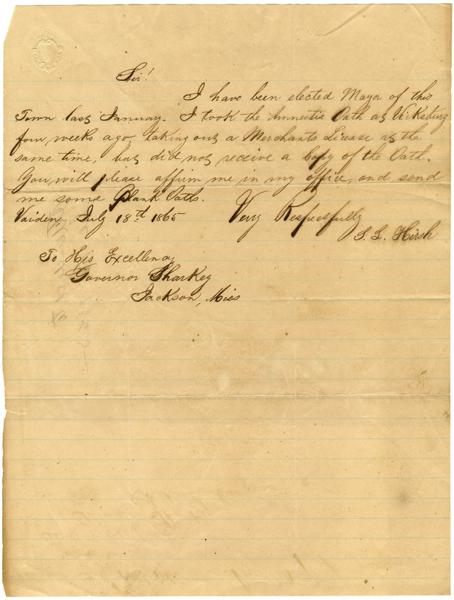 Sir!
I have been elected Mayor of this
Town last January. I took the Amnestie Oath at Vicksburg
four weeks ago, taking out a Merchants License at the
same time, but did not receive a Copy of the Oath.
You will please affirm me in my office, and send
me some Blank Oaths.
Vaiden, July 18th 1865 Very Respectfully
S. L. Hirsh
To His Excellency
Governor Sharkey
Jackson, Miss